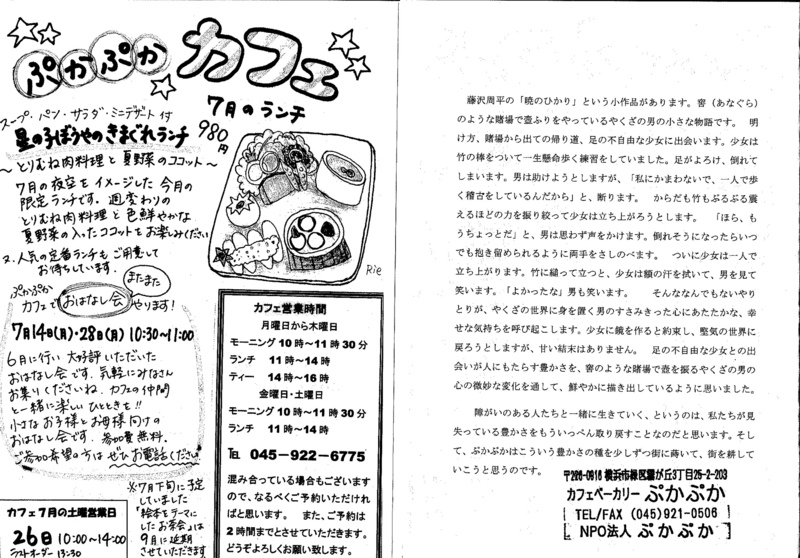 ぷかぷか カフェ
7月のランチ
980円
スープ・パン・サラダ・ミニデザート付
星の子ぼうやのきまぐれランチ
～とりむね肉料理と夏野菜のココット～
7月の夜空をイメージした今月の
限定ランチです。週変わりの
とりむね肉料理と色鮮やかな
夏野菜の入ったココットをお楽しみください
2.人気の定番ランチもご用意して
お待ちしています。
Rie
ぷかぷか
カフェでおはなし会
またまた
やります!
7月14日(月)・28日(月) 10:30～11:00
6月に行い大好評いただいた
おはなし会です。気軽にみなさん
お集りくださいね。カフェの仲間
と一緒に楽しいひとときを!!
小さなお子様とお母様向けの
おはなし会です。参加費無料。
ご参加希望の方はぜひお電話ください。
カフェ7月の土曜営業日
26日 10:00～14:00
ラストオーダー 13:30
※7月下旬に予定
していました
「絵本をテーマに
したお茶会」は
9月に延期
させていただきます
カフェ営業時間
月曜日から木曜日
モーニング 10時～11時30分
ランチ 11時～14時
ティー 14時～16時
金曜日・土曜日
モーニング 10時～11時30分
ランチ 11時～14時
TEL 045-922-6775
混み合っている場合もございます
ので、なるべくご予約いただけれ
ばと思います。 また、ご予約は
2時間までとさせていただきます。
どうぞよろしくお願い致します。
藤沢周平の「暁のひかり」という小作品があります。窖(あなぐら)
のような賭場で壺ふりをやっているやくざの男の小さな物語です。 明
け方、賭場から出ての帰り道、足の不自由な少女に出会います。少女は
竹の棒をついて一生懸命歩く練習をしていました。足がよろけ、倒れて
しまいます。男は助けようとしますが、「私にかまわないで、一人で歩
く稽古をしているんだから」と、断ります。 からだも竹もぶるぶる震
えるほどの力を振り絞って少女は立ち上がろうとします。 「ほら、も
うちょっとだ」と、男は思わず声をかけます。倒れそうになったらいつ
でも抱き留められるように両手をさしのべます。 ついに少女は一人で
立ち上がります。竹に縋って立つと、少女は額の汗を拭いて、男を見て
笑います。「よかったな」男も笑います。 そんななんでもないやり
とりが、やくざの世界に身を置く男のすさみきった心にあたたかな、幸
せな気持ちを呼び起こします。少女に鏡を作ると約束し、堅気の世界に
戻ろうとしますが、甘い結末はありません。 足の不自由な少女との出
会いが人にもたらす豊かさを、窖のような賭場で壺を振るやくざの男の
心の微妙な変化を通して、鮮やかに描き出しているように思いました。
障がいのある人たちと一緒に生きていく、というのは、私たちが見
失っている豊かさをもういっぺん取り戻すことなのだと思います。そし
て、ぷかぷかはこういう豊かさの種を少しずつ街に蒔いて、街を耕して
いこうと思うのです。
〒226-0016 横浜市緑区霧が丘3丁目25-2-203
カフェベーカリー ぷかぷか
TEL/FAX (045)921-0506
NPO法人 ぷかぷか